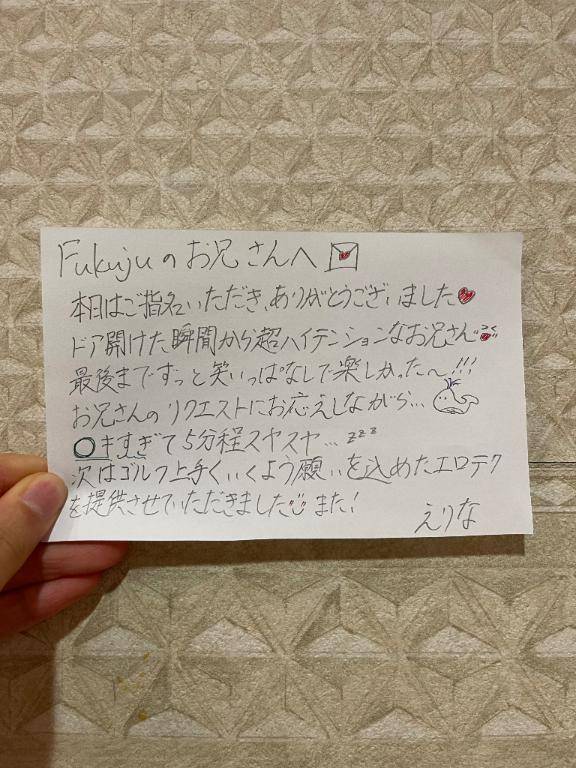 Fukujuのお兄さんへ
本日はご指名いただき、ありがとうございました
ドア開けた瞬間から超ハイテンションなお兄さん
最後までずっと笑いっぱなしで楽しかった〜!!!
お兄さんのリクエストにお応えしながら...
〇キすぎて5分程スヤスヤ... zzz
次はゴルフ上手くいくよう願いを込めたエロテク
を提供させていただきました また!
えりな